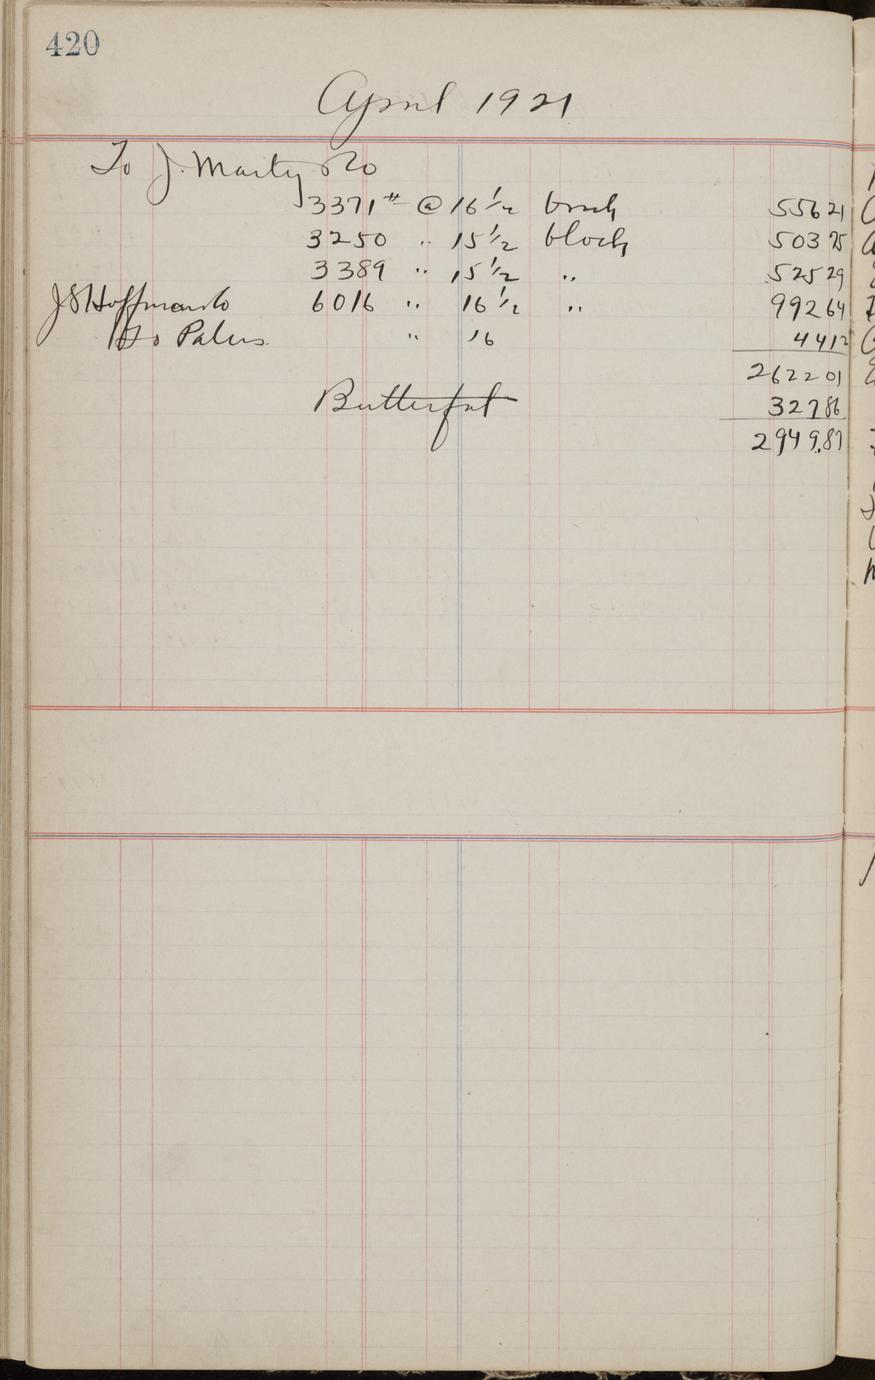 420
April 1921
To J. Marty & Co
3371 # @ 16 1/2 brick 556 21
3250 " 15 1/2 block 503 75
3389 " 15 1/2 " 525 29
J S Hoffman Co 6016 " 16 1/2 " 992 64
To Palms " 16 44 12
2622 01
Butterfat 327 86
2949.87